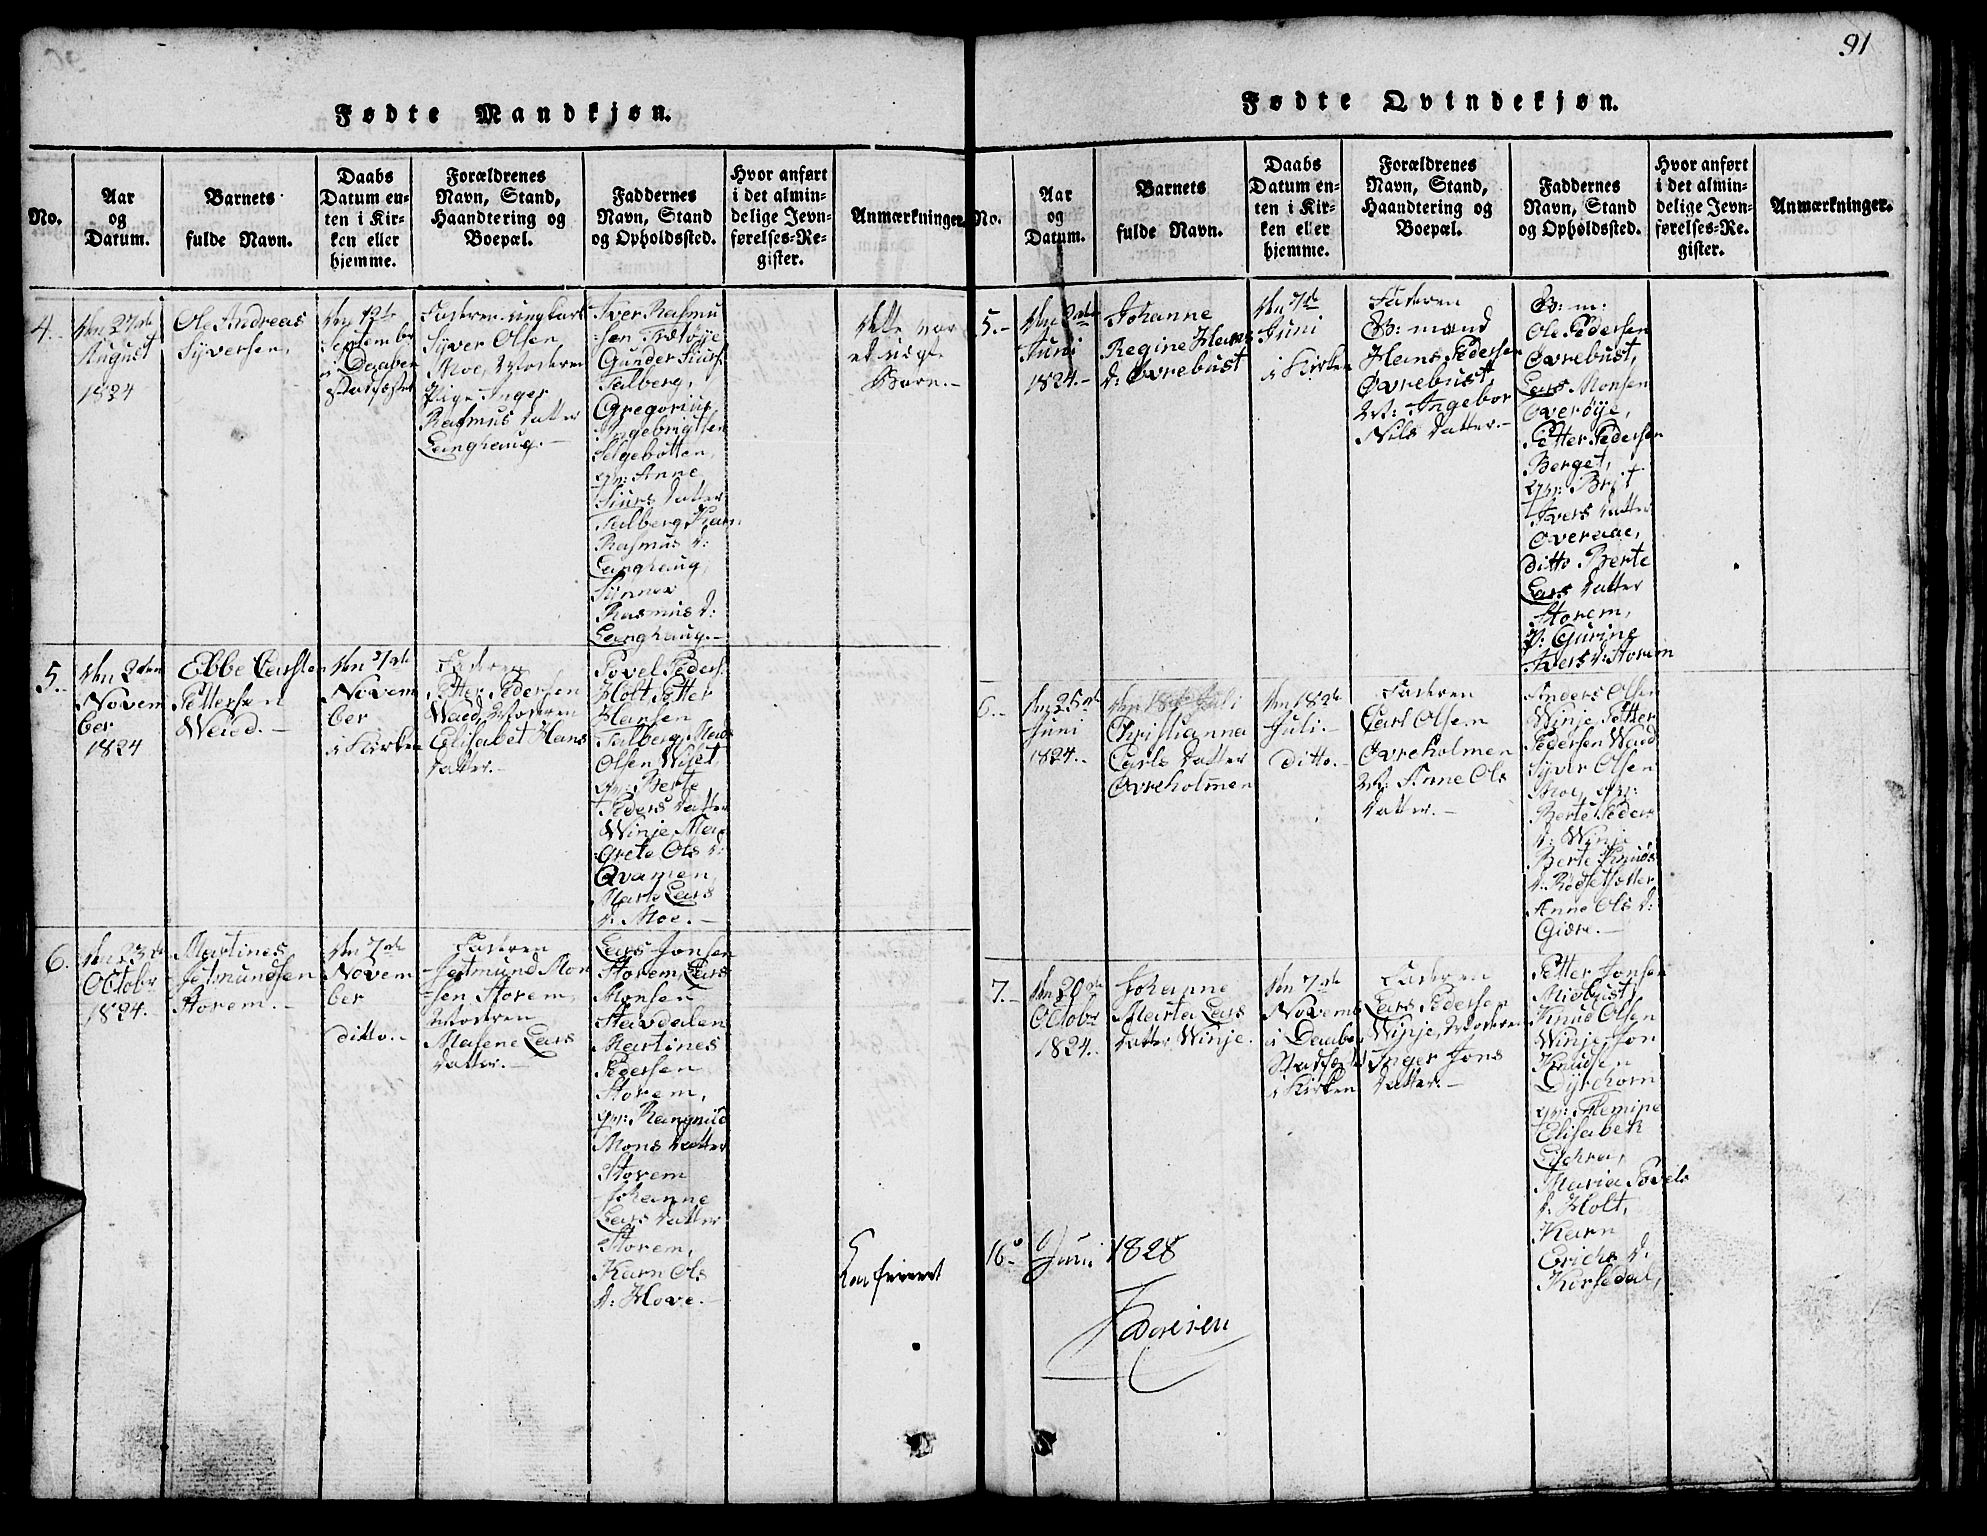 91
Fødte Mandkjøn.
No.
Aar
og
Datum.
Barnets
fulde Navn.
Daabs
Datum en-
ten i Kir-
ken eller
hjemme.
Forældrenes
Navn, Stand,
Haandtering og
Boepæl.
Faddernes
Navn, Stand
og Opholdssted.
Hvor anført
i det almin-
delige Jevn-
førelses-Re-
gister.
Anmærkninger.
4.
den 27de
August
1824
Ole Andreas
Syversen,
den 12te
September
Faderen ungkarl
Syver Olsen
Moe, Moderen
Pige Inger
Rasmus datter
Langhaug.-
Iver Rasmu
sen
Gunder Siurs
Talberg,
Gregorius
Ingebrigtsen
Selgebotten,
qv: Anne
Siurs datter
Talberg, Karn
Rasmus d:
Langhaug,
Synnev
Rasmus d:
Langhaug.-
dette var
et uægte
Barn.-
5.
den 2den
Novem
ber
1824
Ebbe Carsten
Pettersen
Waud.-
den 7de
Novem
ber
i Kirken
Faderen
Petter Pedersen
Waud, Moderen
Elisabet Hans
datter.-
Povel Peders.
Holt, Petter
Hansen
Talberg, Mads
Olsen Wiset,
qv: Berte
Peders datter
Winje, Mar
grete Ols d:
Qvamen,
Marte Lars
d. Moe.-
6.
den 23de
Octobr
1824.-
Martines
Jetmundsen
Storem.-
den 7de
Novem
ber
ditto.-
Faderen
Jetmund Mon
sen Storem,
Moderen
Malene Lars
datter.-
Lars Jonsen
Storem, Lars
Monsen
Stavdalen
Martines
Pedersen
Storem,
qv: Rangnild
Mons datter
Storem
Johanne
Lars datter
Storem,
Karn Ols
d: Hove.-
Fødte Qvindekjøn.
No.
Aar
og
Datum.
Barnets
fulde Navn.
Daabs
Datum en-
ten i Kir-
ken eller
hjemme.
Forældrenes
Navn, Stand,
Haandtering og
Boepæl.
Faddernes
Navn, Stand
og Opholdssted.
Hvor anført
i det almin-
delige Jevn-
førelses-Re-
gister.
Anmærkninger.
5.-
Juni
1824.-
Johanne
Regine Hans
d: Øvrebust
den 7de
Juni
i Kirken
Faderen
G: mand
Hans Pedersen
Øvrebust
M: Ingebor
Nils datter.-
G: m:
Ole Pedersen
Øvrebust,
Lars Monsen
Overøye,
Petter Pedersen
Berget,
qv: Brit
Ivers datter
Overaae,
ditto Berte
Lars datter
Storem,
P. Gurine
Ivers d: Storem
6.-
den 25de
Juni
1824.-
den 18de Juli
Christianna
Carls datter
Øvreholmen
den 18de
Juli.-
Ditto.-
Faderen
Carl Olsen
Øvreholmen
M: Anne Ols
datter.-
Anders Olsen
Winje, Petter
Pedersen Waud
Syver Olsen
Moe, qv:
Berte Peders
d: Winje
Berte Knuds
d.
Anne Ols d:
Giære.-
7.-
den 20de
Octobr
1824.-
Johanne
Marta Lars
datter Winje.
den 7de
Novemb
i Kirken
Faderen
Lars Pedersen
Winje, Moderen
Inger Jons
datter.-
Petter Jonsen
Miøbust,
Knud Olsen
Winje, Jon
Knudsen
Dyrehorn
qv:
Elisabeth
Maria Povels
d. Holt,
Karn
Erichs d.
Kirsedal,
Confereret
16. Juni 1828